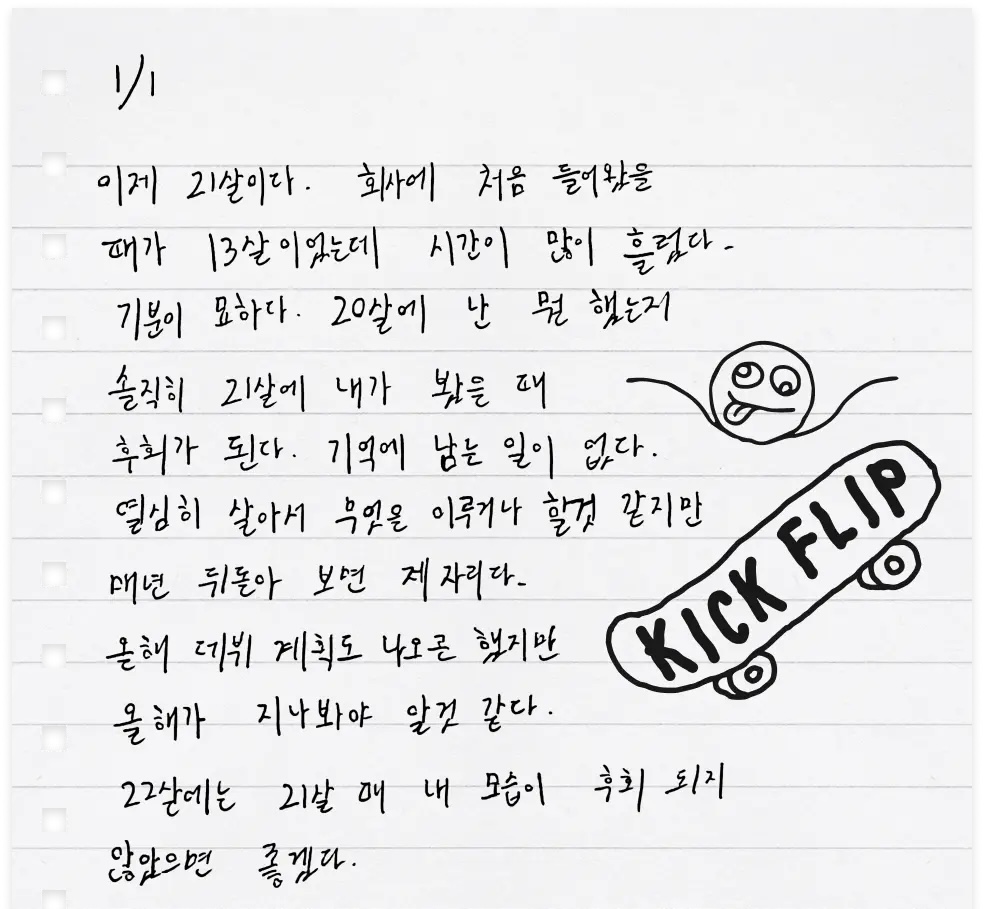 1/1
이제 21살이다. 회사에 처음 들어왔을
때가 13살이었는데 시간이 많이 흘렀다.
기분이 묘하다. 20살에 난 뭔 했는지
솔직히 21살에 내가 봤을 때
후회가 된다. 기억에 남는 일이 없다.
열심히 살아서 무엇을 이루거나 할것 같지만
매년 뒤돌아 보면 제자리다.
올해 데뷔 계획도 나오곤 했지만
올해가 지나봐야 알것 같다.
22살에는 21살 때 내 모습이 후회 되지
않았으면 좋겠다.
KICK FLIP